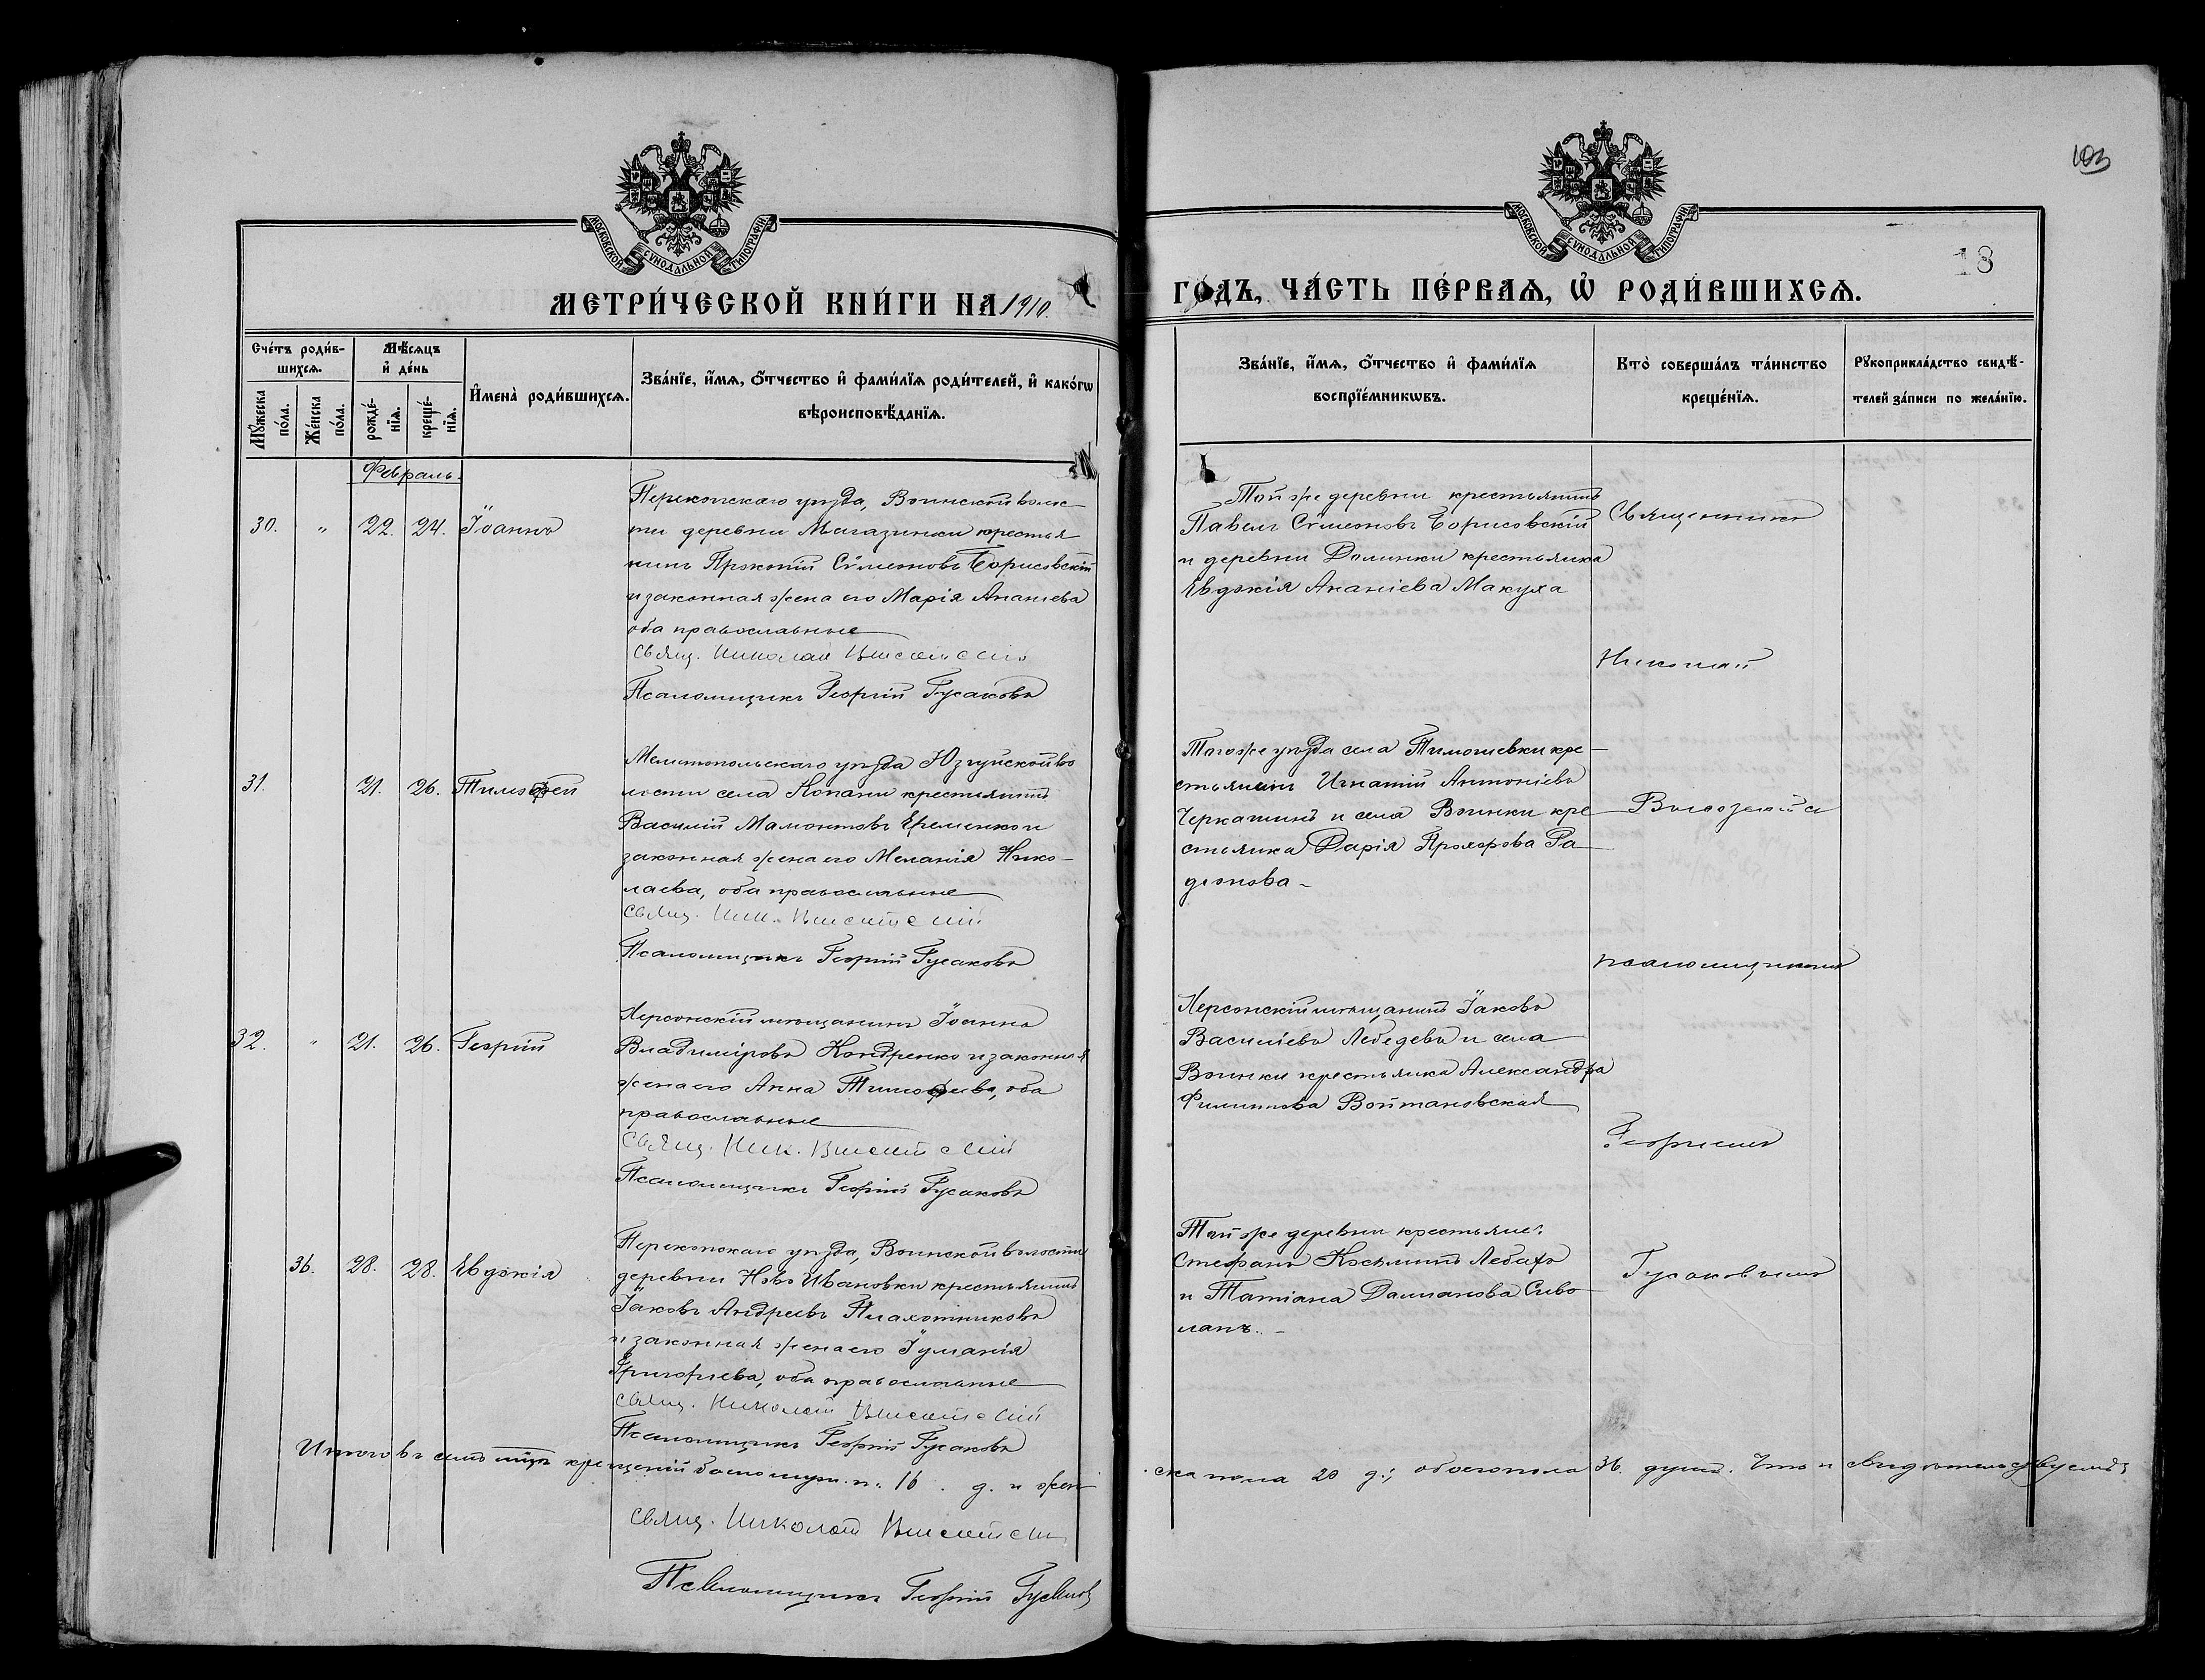 103
18
МОСКОВСКОЙ СѴНОДАЛЬНОЙ ТИПОГРАФІИ
МОСКОВСКОЙ СѴНОДАЛЬНОЙ ТИПОГРАФІИ
МЕТРИ́ЧЕСКОЙ КНИ́ГИ НА 1910.
ГО́ДЪ, ЧА́СТЬ ПЕ́РВАѦ, Ѡ҆ РОДИ́ВШИХСѦ.
Сче́тъ роди́в-
шихсѧ.
Мꙋ́жеска по́ла.
Же́нска по́ла.
Мѣ́сѧцъ
и҆ де́нь
рожде́-
нїѧ.
креще́-
нїѧ.
И҆мена̀ роди́вшихсѧ.
Зва́нїе, и҆́мѧ, ѻ҆́тчество и҆ фами́лїѧ роди́телей, и҆ како́гѡ
вѣроисповѣ́данїѧ.
Зва́нїе, и҆́мѧ, ѻ҆́тчество и҆ фами́лїѧ
воспрїе́мникѡвъ.
Кто̀ соверша́лъ та́инство
креще́нїѧ.
Рꙋкоприкла́дство свидѣ́-
телей за́писи по жела́нїю.
Февраль.
30. " 22. 24. Іоаннъ
Перекопскаго уѣзда, Воинской волос
ти деревни Магазинки крестья
нинъ Прокопій Сѵмеоновъ Борисовскій
и законная жена его Марія Ананіева
оба православные
Свящ. Николай
Псаломщикъ Георгій Гусаковъ
Той же деревни крестьянинъ
Павелъ Сѵмеоновъ Борисовскій
и деревни Долинки крестьянка
Евдокія Ананіева Макуха
Священникъ
Николай
31. 21. 26. Тимоѳей
Мелитопольскаго уѣзда Юзгуйской во
лости села Копани крестьянинъ
Василій Мамонтовъ Еременко и
законная жена его Меланія Нико-
лаева, оба православные
Свящ. Ник.
Псаломщикъ Георгій Гусаковъ
Того же уѣзда села Тимошевки кре-
стьянинъ Игнатій Антоніевъ
Черкашинъ и села Воинки кре
стьянка Дарія Прохорова Ра
діонова -
псаломщикомъ
32. " 21. 26. Георгій
Херсонскій мѣщанинъ Іоаннъ
Владиміровъ Кондренко и законная
жена его Анна Тимоѳеева, оба
православные
Свящ. Ник.
Псаломщикъ Георгій Гусаковъ
Херсонскій мѣщанинъ Іаковъ
Васильевъ Лебедевъ и села
Воинки крестьянка Александра
Филиппова Войтановская
Георгіемъ
36. 28. 28. Евдокія
Перекопскаго уѣзда, Воинской волости
деревни Ново Ивановки крестьянинъ
Іаковъ Андреевъ Плахотниковъ
и законная жена его Іуліанія
Григорьева, оба православные
Свящ. Николай
Псаломщикъ Георгій Гусаковъ
Той же деревни крестьяне:
Стефанъ Косминъ
и Татіана Даміанова Сиво
лапъ. -
Гусаковымъ
Итого въ семъ мцѣ крещеній было муж. п. 16. д. и жен
ска пола 20 д.; обоего пола 36. душъ. Что и свидѣтельствуемъ:
Свящ. Николай
Псаломщикъ Георгій Гусаковъ